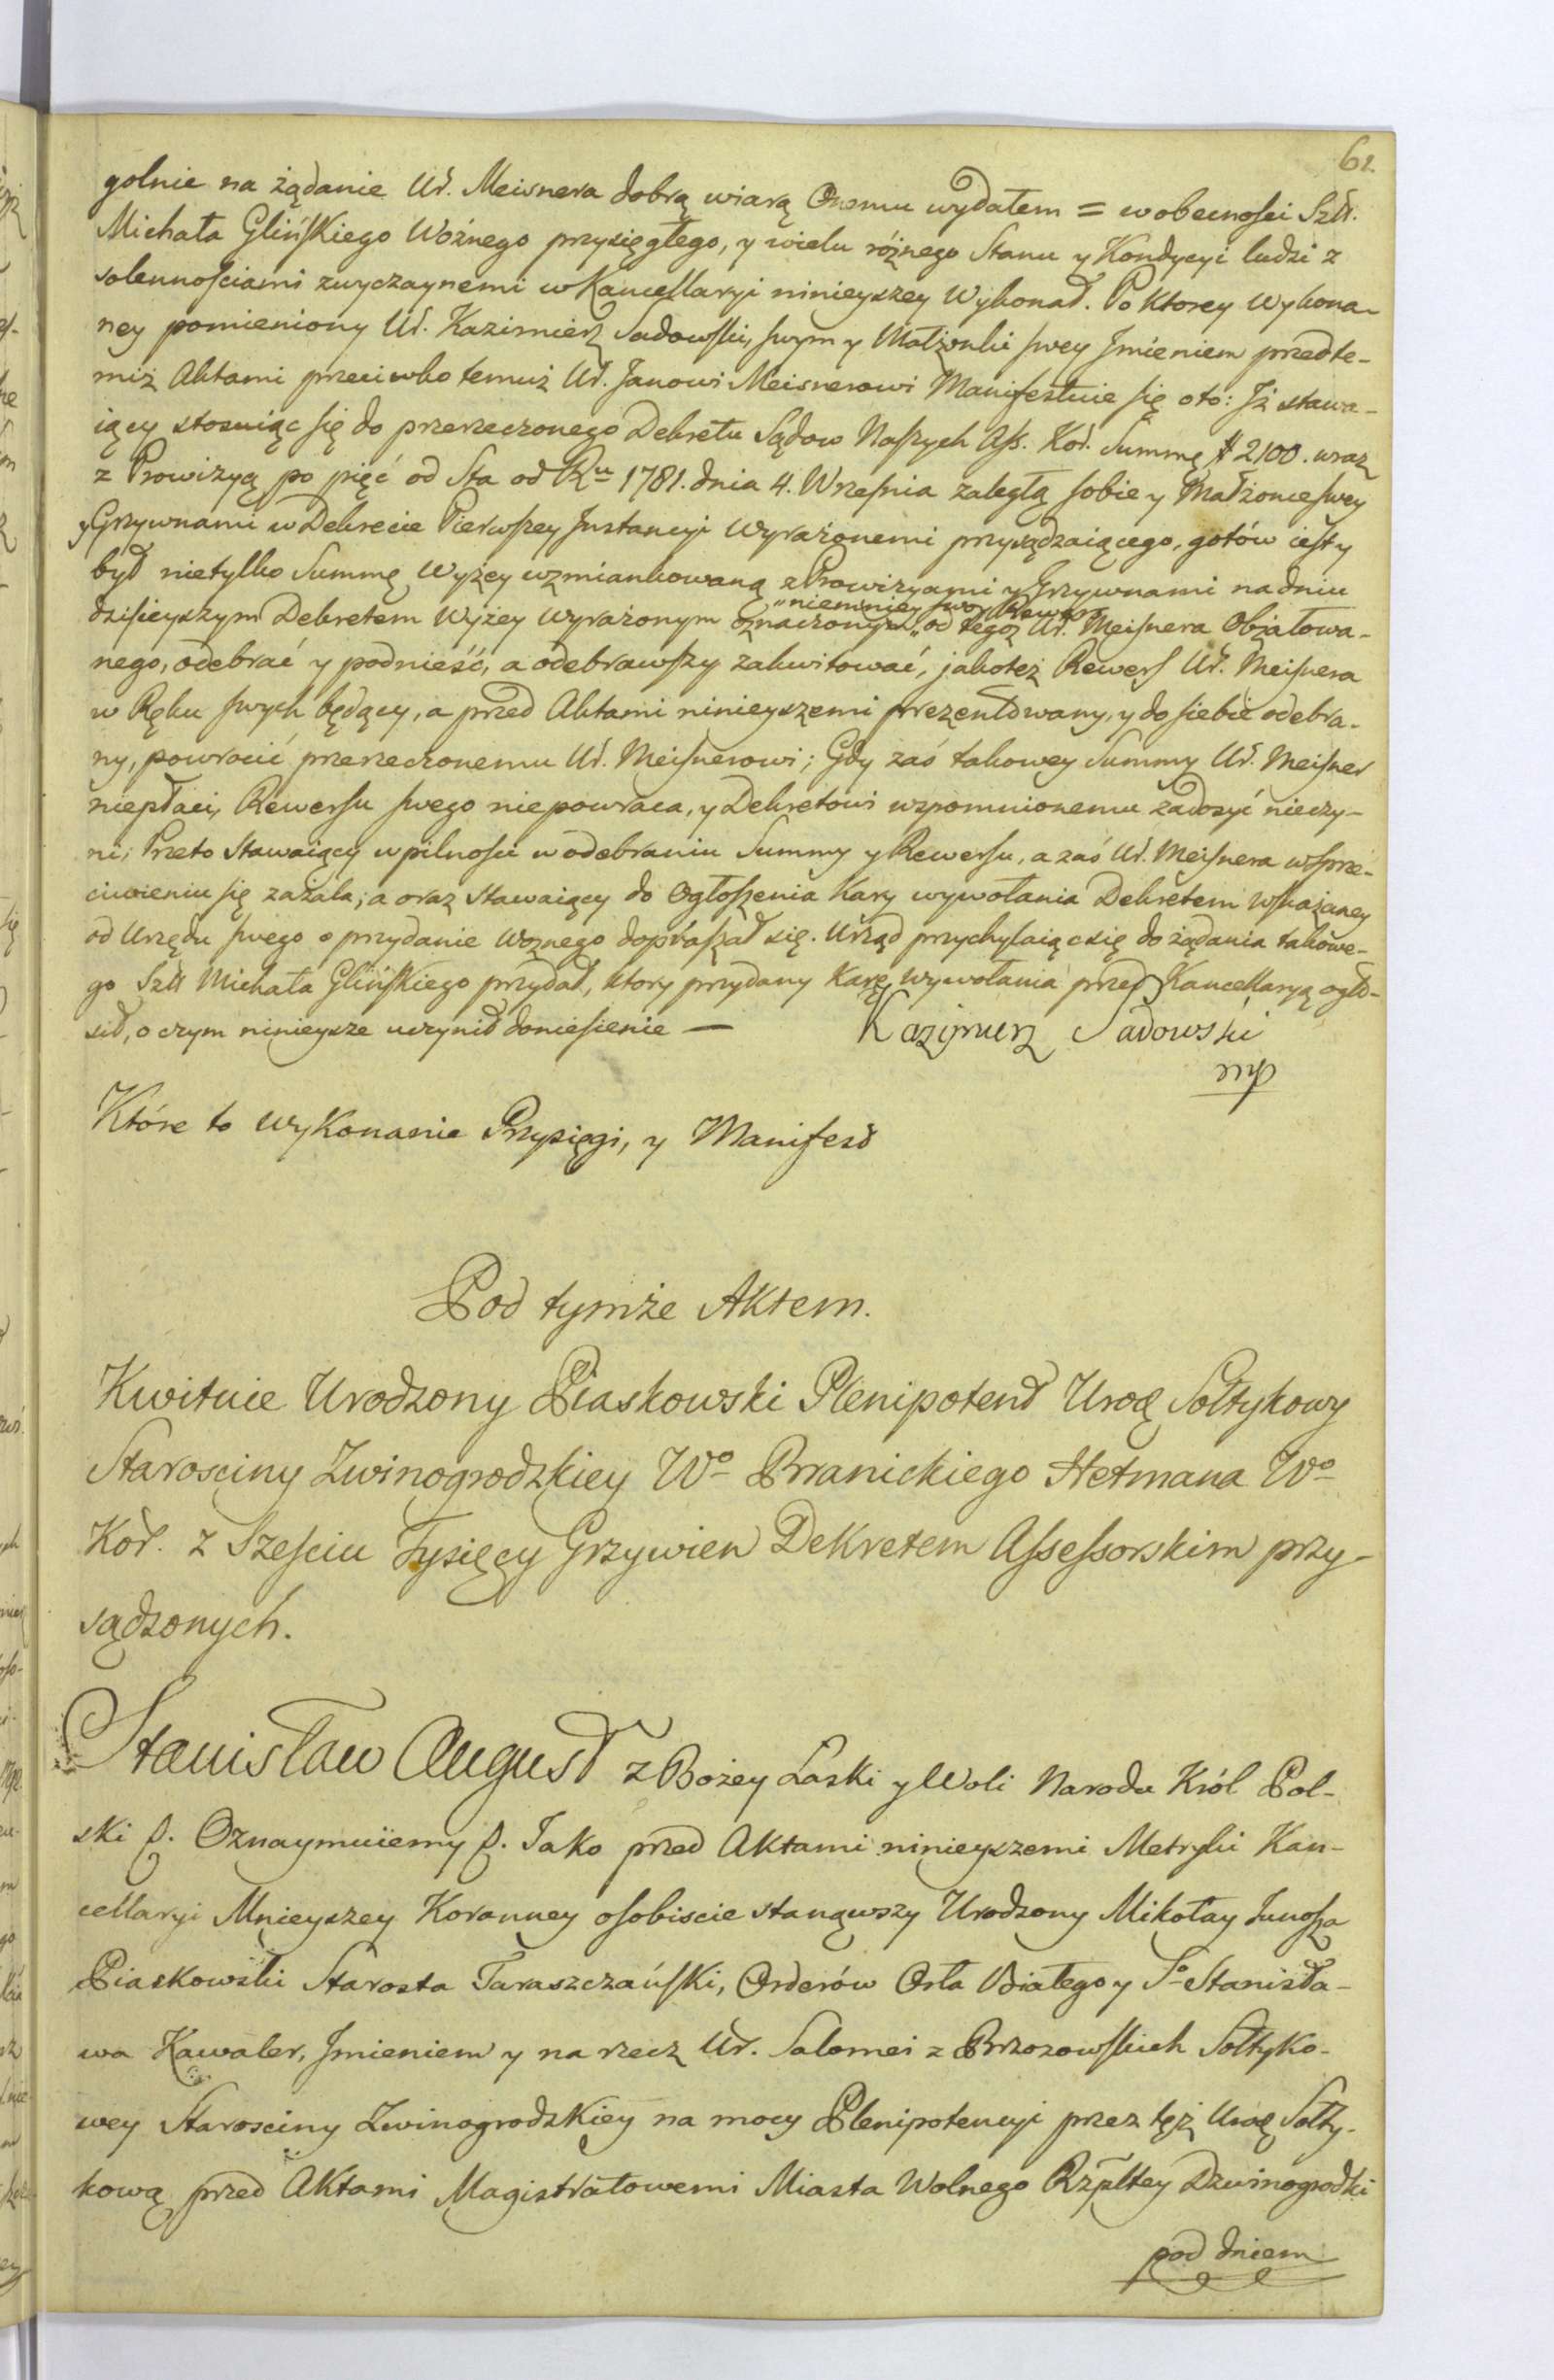 61.
golnie na żądanie Ur. Meisnera dobrą wiarą Onemu wydałem = w obecności Szl.
Michała Glińskiego Woźnego przysięgłego, y wielu różnego Stanu y Kondycyi ludzi z
solennościami zwyczaynemi w Kancellaryi ninieyszey Wykonał. Po ktorey wykona-
ney pomieniony Ur. Kazimierz Sadowski, swym y Małżonki swey Jmieniem przed te-
miż Aktami przeciwko temuż Ur. Janowi Meisnerowi Manifestuie się oto: Jż stawa-
iący stosuiąc się do przerzeczonego Dekretu Sądow Naszych Ass. Kor. Summę # 2100. wraz
z Prowizyą po pięć od Sta od Ru 1781. dnia 4. Września zaległą sobie y Małżonce swey
y Grzywnami w Dekrecie Pierwszey Instancyi wyrażonemi przysądzaiącego, gotów iest y
był nietylko Summę Wyżey wzmiankowaną z Prowizyami y Grzywnami na dniu
„niemniey swoy Rewers
dzisieyszym Dekretem Wyżey wyrażonym oznaczonym „od tegoż Ur. Meisnera Obżałowa-
nego, odebrać y podnieść, a odebrawszy zakwitować, jakoteż Rewers Ur. Meisnera
w Ręku swych będący, a przed Aktami ninieyszemi prezentowany, y do siebie odebra-
ny, powrocić przerzeczonemu Ur. Meisnerowi; Gdy zaś takowey Summy Ur. Meisner
niepłaci, Rewersu swego niepowraca, y Dekretowi wspomnionemu zadosyć nieczy-
ni; Przeto Stawaiący w pilności w odebraniu Summy y Rewersu, a zaś Ur. Meisnera w sprze-
ciwieniu się zażala; a oraz stawaiący do Ogłoszenia Kary wywołania Dekretem wskazaney
od Urzędu swego o przydanie Woznego dopraszał się. Urząd przychylaiąc się do żądania takowe-
go Szl Michała Glińskiego przydał, ktory przydany Karę wywołania przed Kancellaryą ogło-
sił, o czym ninieysze uczynił doniesienie — Kazimierz Sadowski
mp
Które to wykonanie Przysięgi, y Manifest
Pod tymże Aktem.
Kwituie Urodzony Piaskowski Plenipotent Urod Sołtykowy
Starosciny Zwinogrodzkiey Wo Branickiego Hetmana Wo
Kor. z Sześciu Tysięcy Grzywien Dekretem Assessorskim przy-
sądzonych.
Stanisław August z Bożey Łaski y Woli Narodu Król Pol-
ski &. Oznaymuiemy &. Jako przed Aktami ninieyszemi Metryki Kan-
cellaryi Mnieyszey Koronney osobiscie stanąwszy Urodzony Mikołay Junosza
Piaskowski Starosta Taraszczański, Orderów Orła Białego y So Stanisła-
wa Kawaler, Jmieniem y na rzecz Ur. Salomei z Brzozowskich Sołtyko-
wey Starosciny Zwinogrodzkiey na mocy Plenipotencyi przez tęż Urod Sołty-
kową przed Aktami Magistratowemi Miasta Wolnego Rzpltey Dzwinogrodki
pod dniem